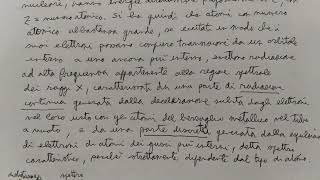 nucleare, hanno energie direttamente proporzionali a Z, con
Z = numero atomico. Si ha quindi che atomi con numero
atomico abbastanza grande, se eccitati in modo che i
suoi elettroni possano compiere transizioni da un orbitale
esterno a uno ancora più interno, emettono radiazione
ad alta frequenza appartenente alla regione spettrale
dei raggi X, caratterizzata da una parte di radiazione
continua generata dalla decelerazione subita dagli elettroni
nel loro urto con gli atomi del bersaglio metallico nel tubo
a vuoto, e da una parte discreta generata dalla espulsione
di elettroni di atomi dei gusci più interni, detta spettro
caratteristico, perché strettamente dipendente dal tipo di atomo.
spettro